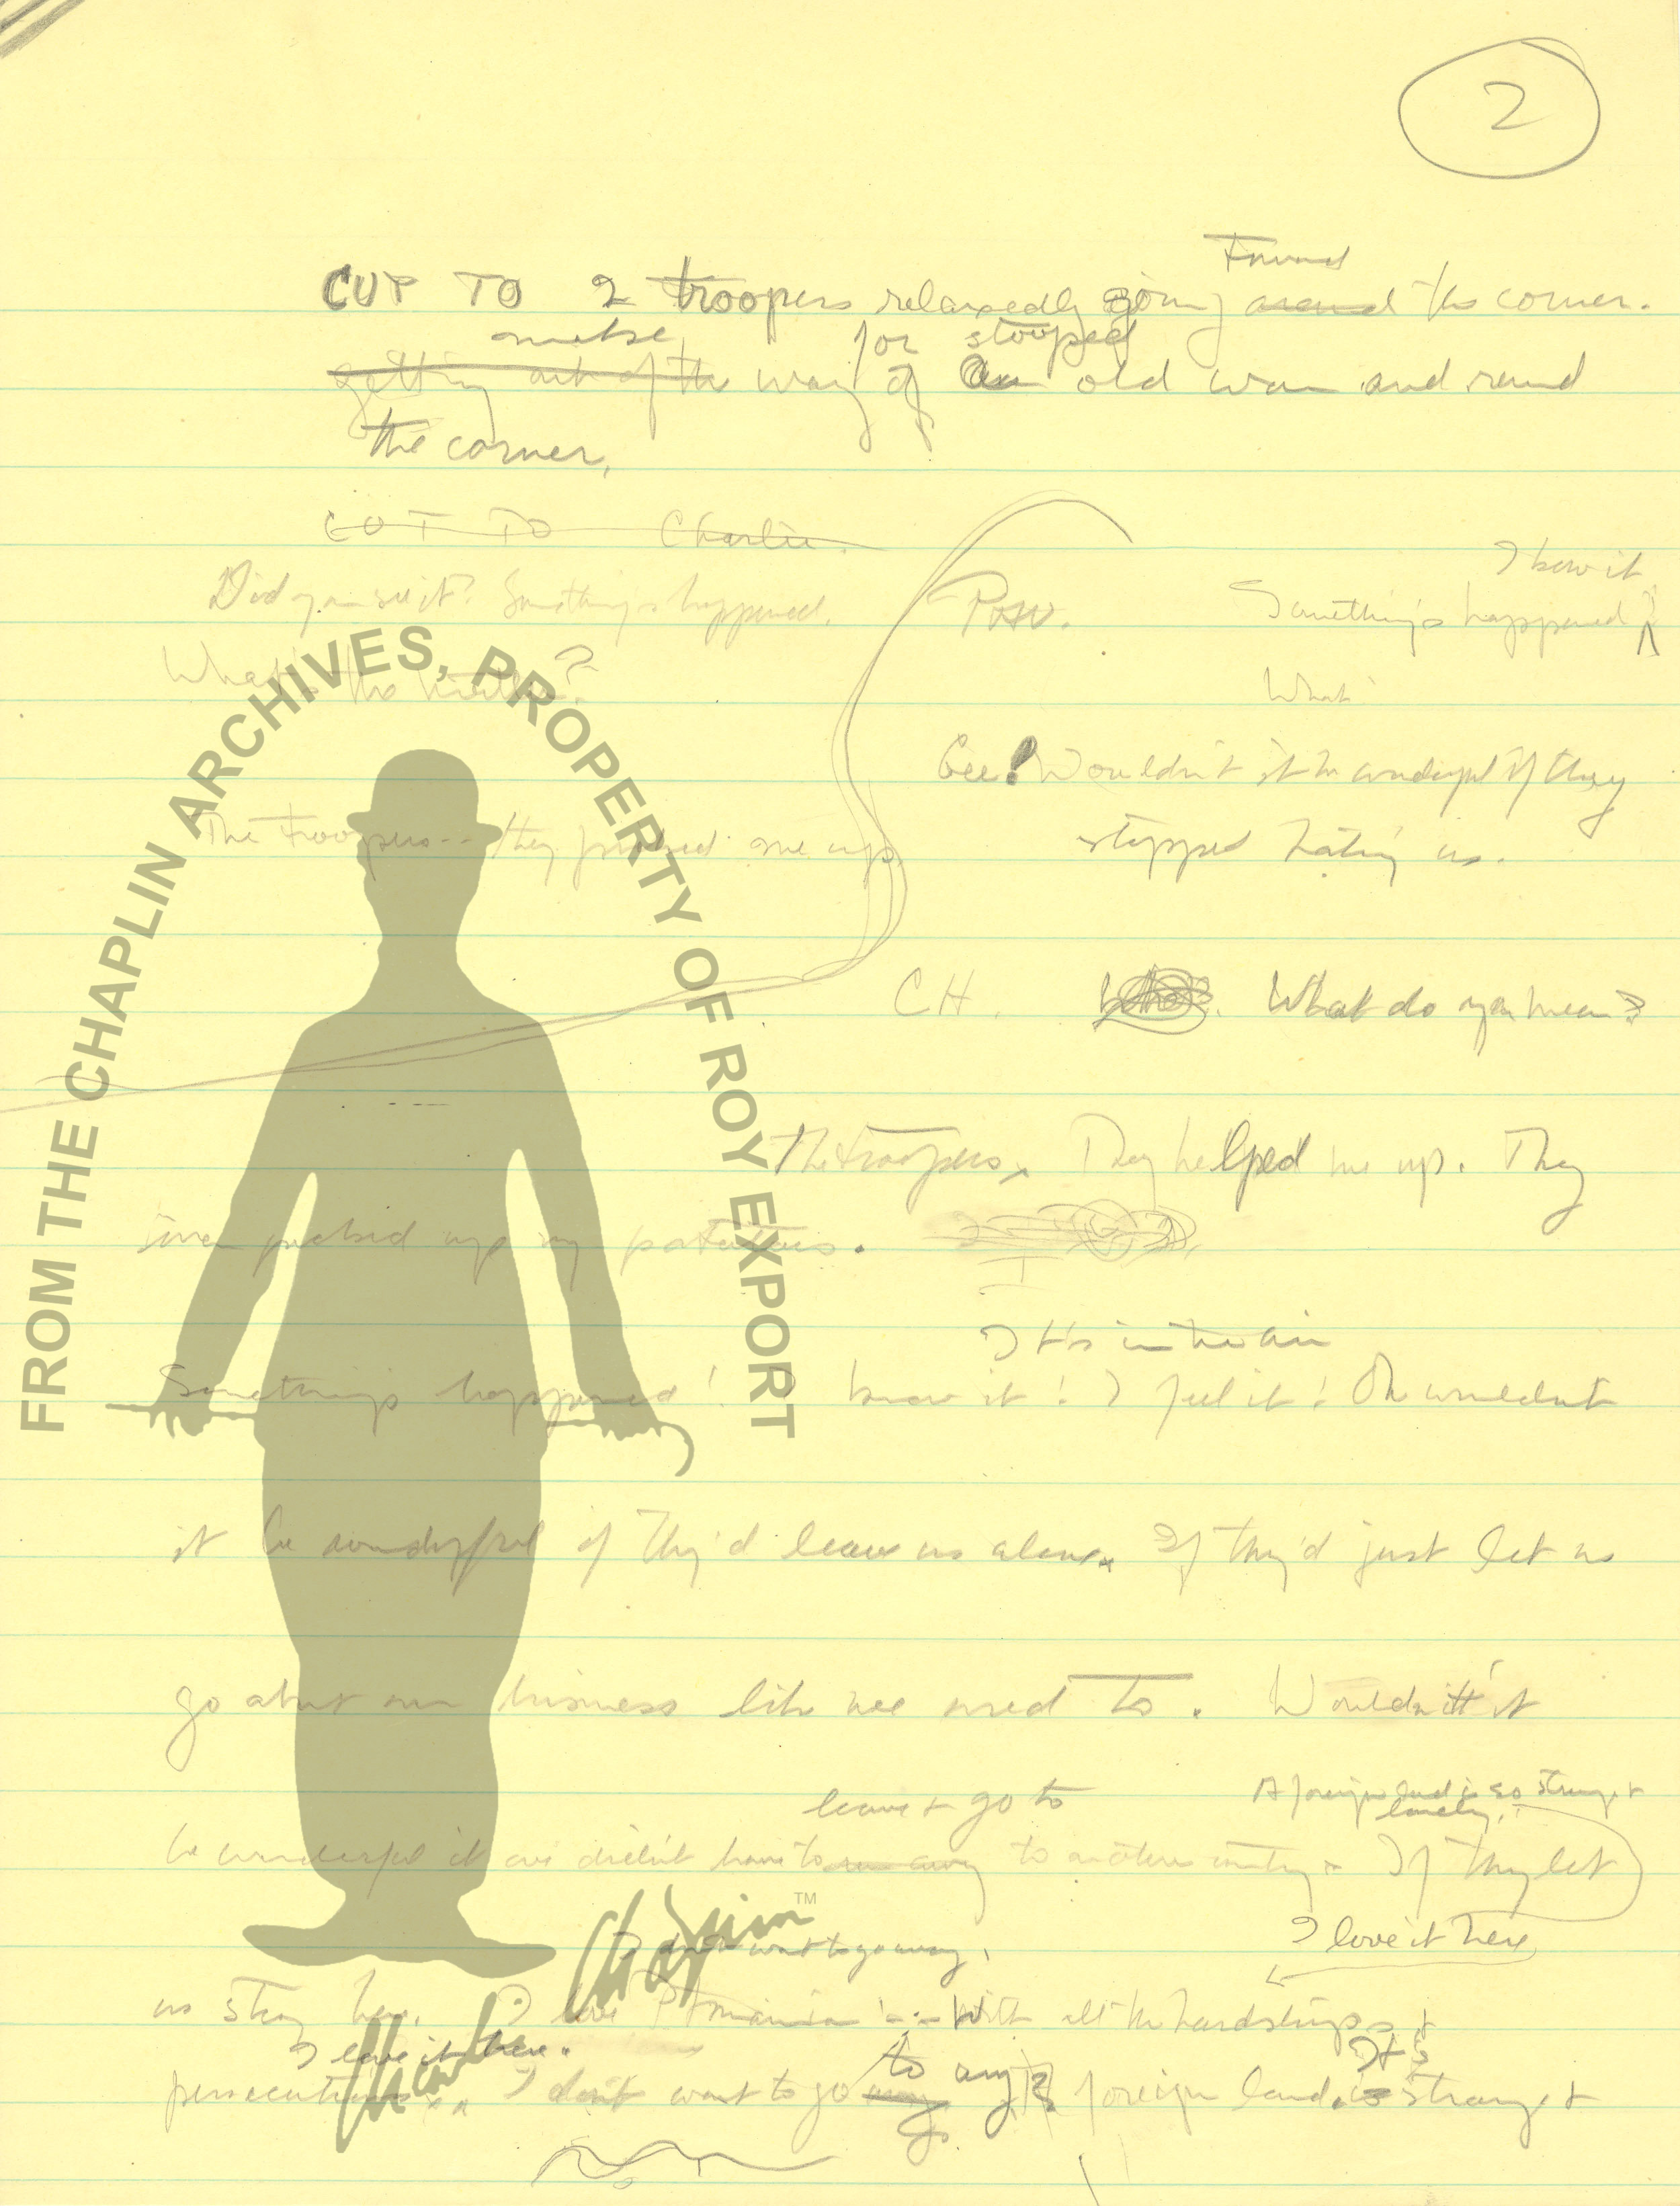 2
Toward
CUT TO 2 troopers relaxedly going around the corner.
make for stooped
getting out of the way of an old man and round
the corner.
CUT TO Charlie.
I know it
Did you see it? Something's happened. Something's happened!
What's the matter? What
Gee! Wouldn't it be wonderful if they
The troopers -- they picked me up stopped hating us.
CH. What do you mean?
The troopers. They helped me up. They
even picked up my potatoes.
It's in the air
Something's happened! I know it! I feel it! Oh wouldn't
it be wonderful if they'd leave us alone. If they'd just let us
go about our business like we used to. Wouldn't it
leave & go to A foreign land is so strange &
lonely.
be wonderful if we didn't have to run away to another country. If they let
I don't want to go away. I love it here
us stay here. I love Ptomania -- With all the hardships &
I love it here. to any It's
persecutions.. I don't want to go away foreign land. is strange &
FROM THE CHAPLIN ARCHIVES, PROPERTY OF ROY EXPORT
Charles Chaplin TM